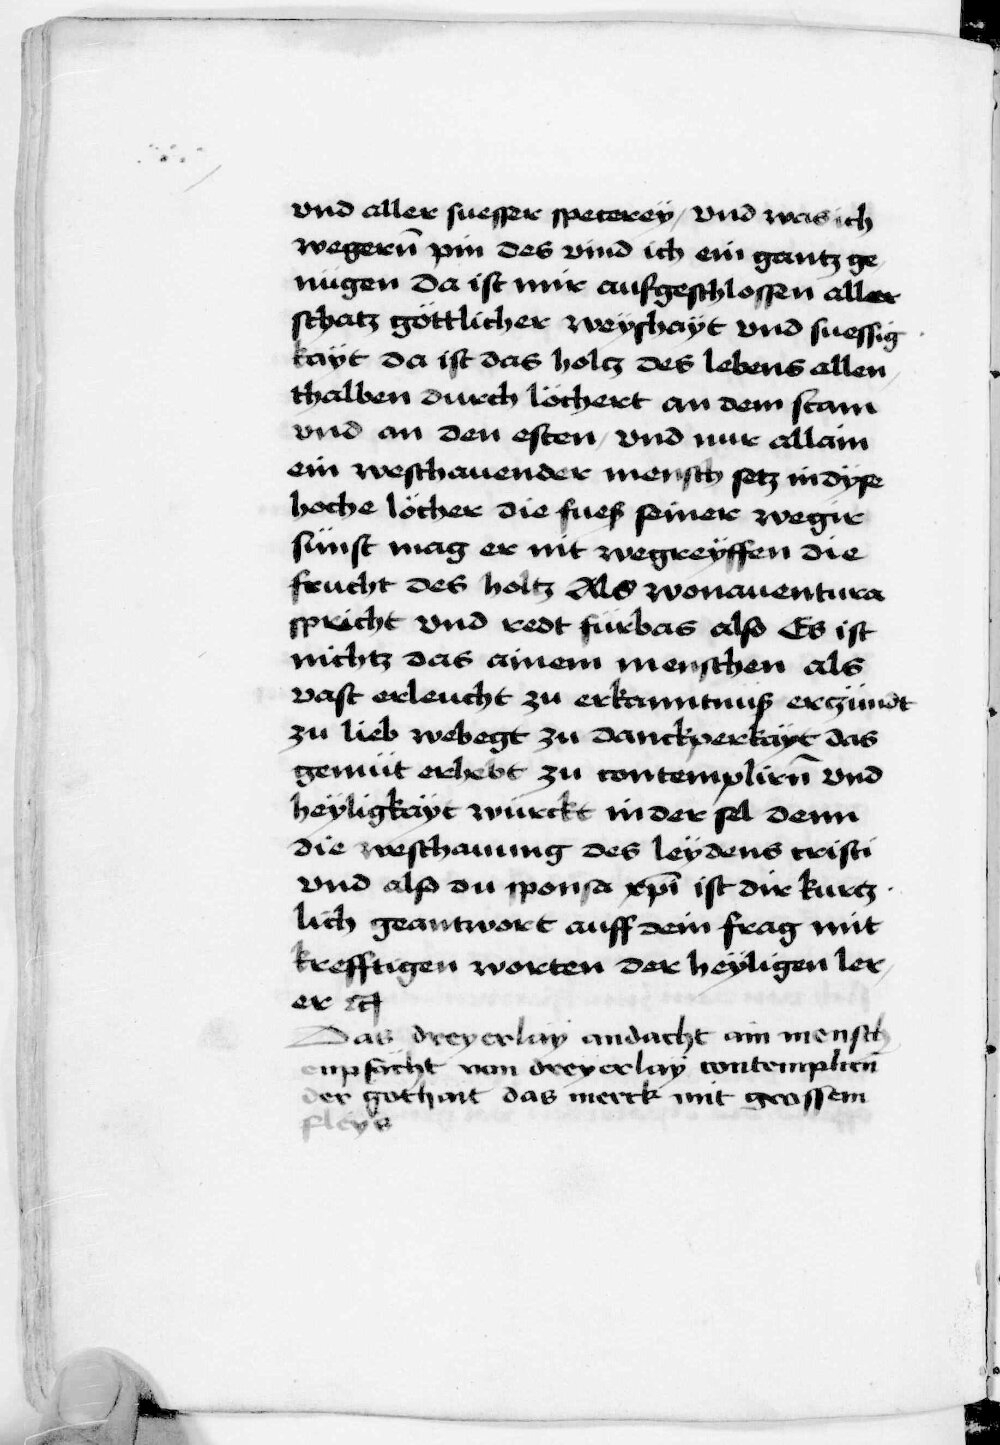 vnd aller suesser speterey / vnd was ich
wegern̄ pin des vind ich ein gantz ge
nügen da ist mir aufgeschlossen aller
schatz göttlicher weyshayt vnd suessig
kayt da ist das holtz des lebens allen /
thalben durch löchert an dem stam
vnd an den esten / vnd nur allain
ein weschauender mensch setz in dÿse
hoche löcher die fues seiner wegir
sünst mag er nit wegreÿffen die
frucht des holtz Als wonauentura
spricht vnd redt fürbas also Es ist
nichtz das ainem menschen als
vast erleucht zu erkanntnuß erczündt
zu lieb webegt zu danckperkäyt das
gemüt erhebt zu contemplirn̄ vnd
heÿligkäyt würckt in der sel denn
die weschauung des leÿdens cristi
vnd also du sponsa xp̄i ist dir kurtz
lich geantwort auff dein frag mit
krefftigen worten der heÿligen ler /
er
Das dreyerlaÿ andacht ain mensch
enpfächt von dreÿerlaÿ contemplirn̄
der gothait das merck mit grossem
fleÿs